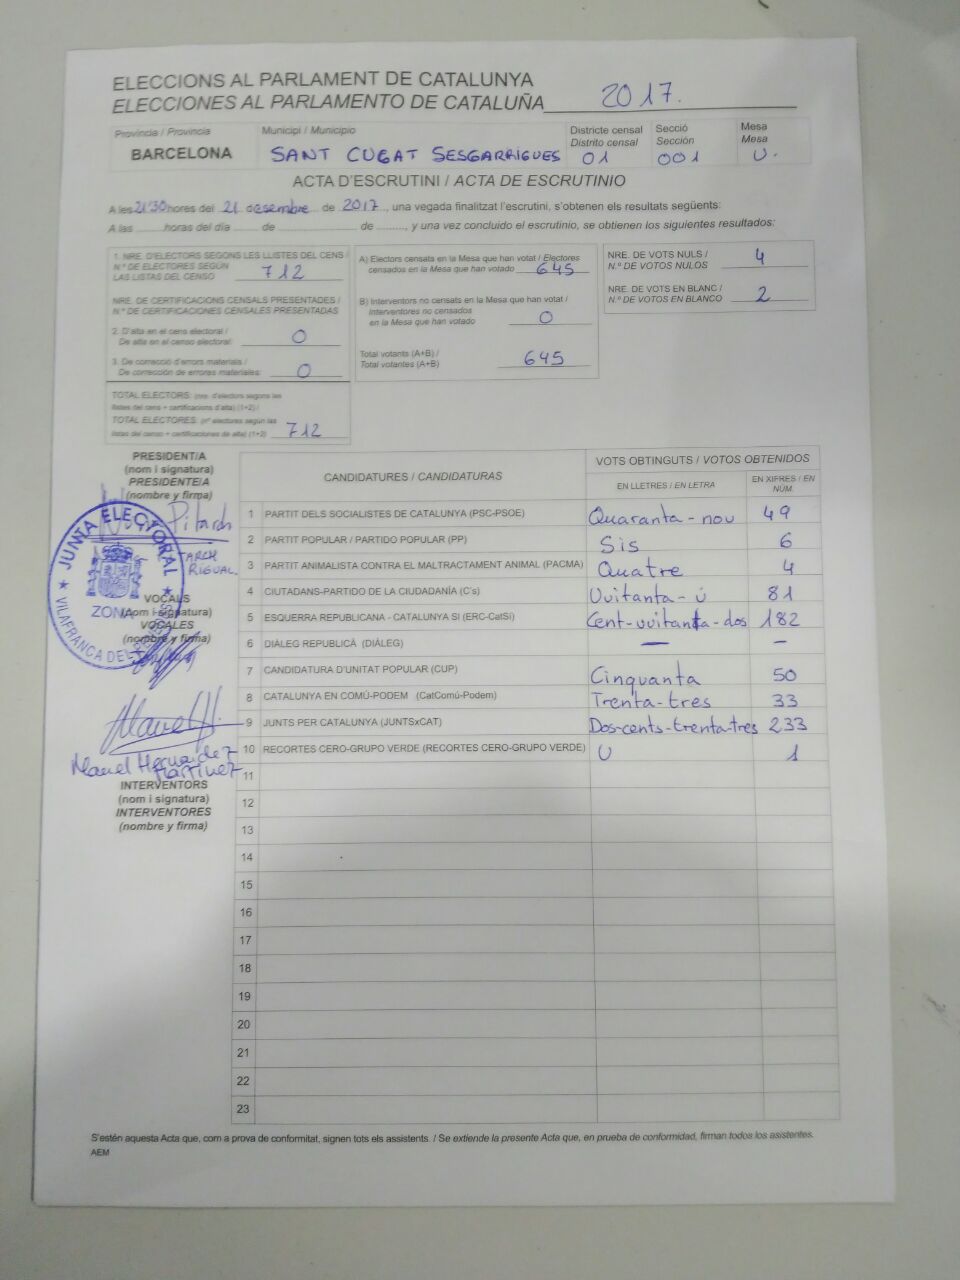 ELECCIONS AL PARLAMENT DE CATALUNYA
ELECCIONES AL PARLAMENTO DE CATALUÑA 2017.
Provincia / Provincia Municipi / Municipio Districte censal Secció Mesa
Distrito censal Sección Mesa
BARCELONA SANT CUGAT SESGARRIGUES 01 001 U.
ACTA D'ESCRUTINI / ACTA DE ESCRUTINIO
A les 21'30 hores del 21 desembre de 2017, una vegada finalitzat l'escrutini, s'obtenen els resultats següents:
A las ......... horas del día ....... de ......................... de ........., y una vez concluido el escrutinio, se obtienen los siguientes resultados:
1. NRE. D'ELECTORS SEGONS LES LLISTES DEL CENS /
N.º DE ELECTORES SEGÚN
LAS LISTAS DEL CENSO 712
NRE. DE CERTIFICACIONS CENSALS PRESENTADES /
N.º DE CERTIFICACIONES CENSALES PRESENTADAS
2. D'alta en el cens electoral /
De alta en el censo electoral: 0
3. De correcció d'errors materials /
De corrección de errores materiales: 0
TOTAL ELECTORS: (nre. d'electors segons les
llistes del cens + certificacions d'alta) (1+2) /
TOTAL ELECTORES: (nº electores según las
listas del censo + certificaciones de alta) (1+2) 712
A) Electors censats en la Mesa que han votat / Electores
censados en la Mesa que han votado 645
B) Interventors no censats en la Mesa que han votat /
Interventores no censados
en la Mesa que han votado 0
Total votants (A+B) /
Total votantes (A+B) 645
NRE. DE VOTS NULS /
N.º DE VOTOS NULOS 4
NRE. DE VOTS EN BLANC /
N.º DE VOTOS EN BLANCO 2
PRESIDENT/A
(nom i signatura)
PRESIDENTE/A
(nombre y firma)
Pitarch
JUNTA ELECTORAL
ZONA
VILAFRANCA DEL
VOCALS
(nom i signatura)
VOCALES
(nombre y firma)
Manel H.
Manel Hernandez
Martinez
INTERVENTORS
(nom i signatura)
INTERVENTORES
(nombre y firma)
CANDIDATURES / CANDIDATURAS VOTS OBTINGUTS / VOTOS OBTENIDOS
EN LLETRES / EN LETRA EN XIFRES / EN NÚM.
1 PARTIT DELS SOCIALISTES DE CATALUNYA (PSC-PSOE) Quaranta-nou 49
2 PARTIT POPULAR / PARTIDO POPULAR (PP) Sis 6
3 PARTIT ANIMALISTA CONTRA EL MALTRACTAMENT ANIMAL (PACMA) Quatre 4
4 CIUTADANS-PARTIDO DE LA CIUDADANÍA (C's) Vuitanta-ú 81
5 ESQUERRA REPUBLICANA - CATALUNYA SI (ERC-CatSí) Cent-vuitanta-dos 182
6 DIÀLEG REPUBLICÀ (DIÀLEG) — —
7 CANDIDATURA D'UNITAT POPULAR (CUP) Cinquanta 50
8 CATALUNYA EN COMÚ-PODEM (CatComú-Podem) Trenta-tres 33
9 JUNTS PER CATALUNYA (JUNTSxCAT) Dos-cents-trenta-tres 233
10 RECORTES CERO-GRUPO VERDE (RECORTES CERO-GRUPO VERDE) U 1
11
12
13
14
15
16
17
18
19
20
21
22
23
S'estén aquesta Acta que, com a prova de conformitat, signen tots els assistents. / Se extiende la presente Acta que, en prueba de conformidad, firman todos los asistentes.
AEM